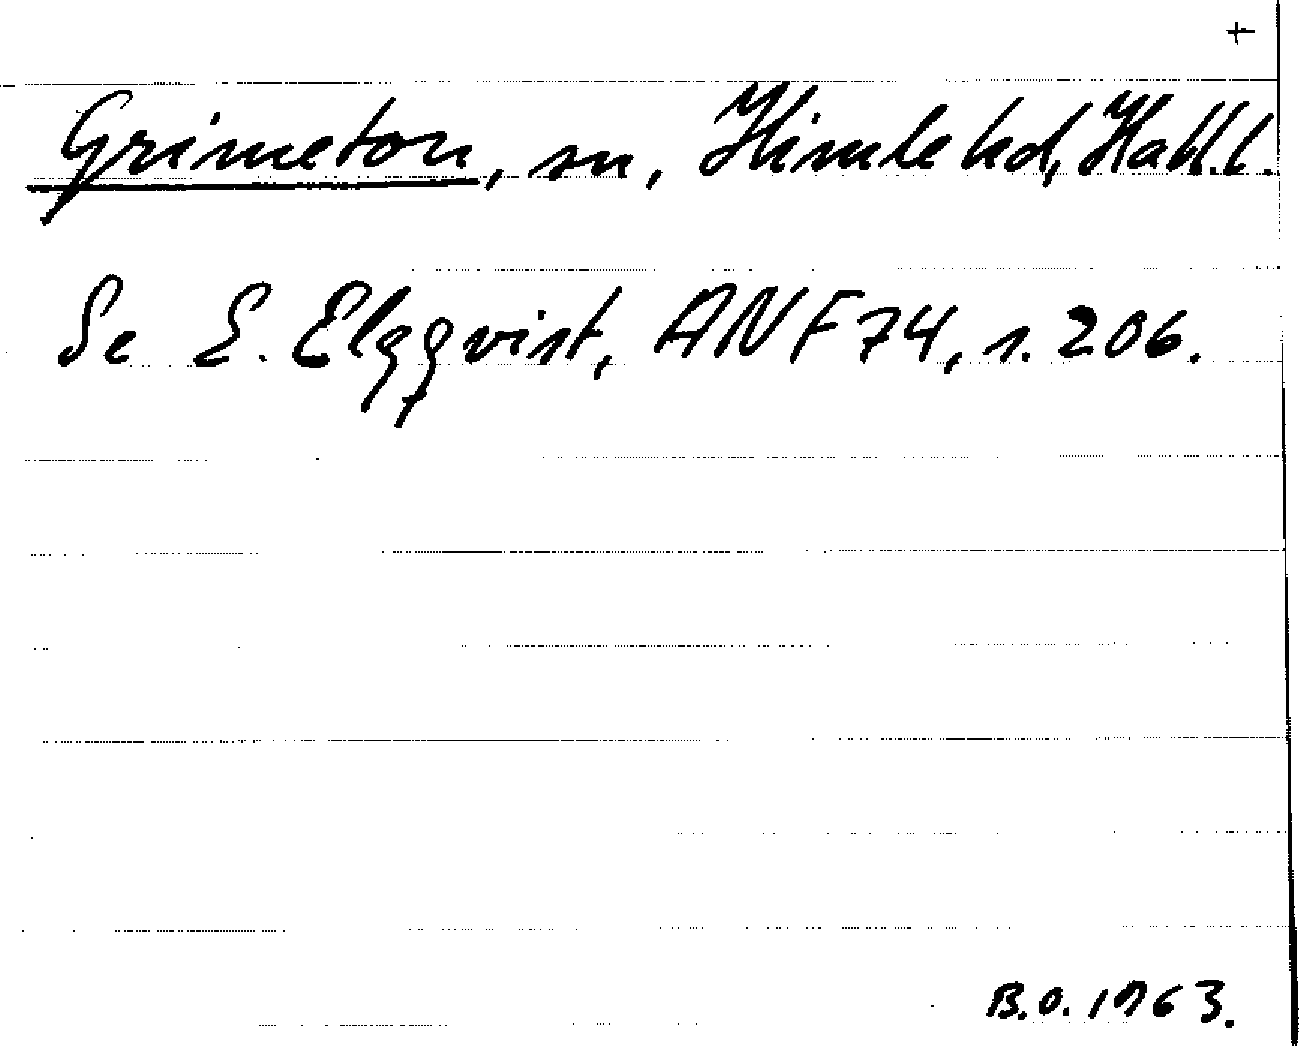 +
Grimeton, sn, Himle hd, Hall. l.
Se E. Elgqvist, ANF 74, s. 206.
B.O. 1963.